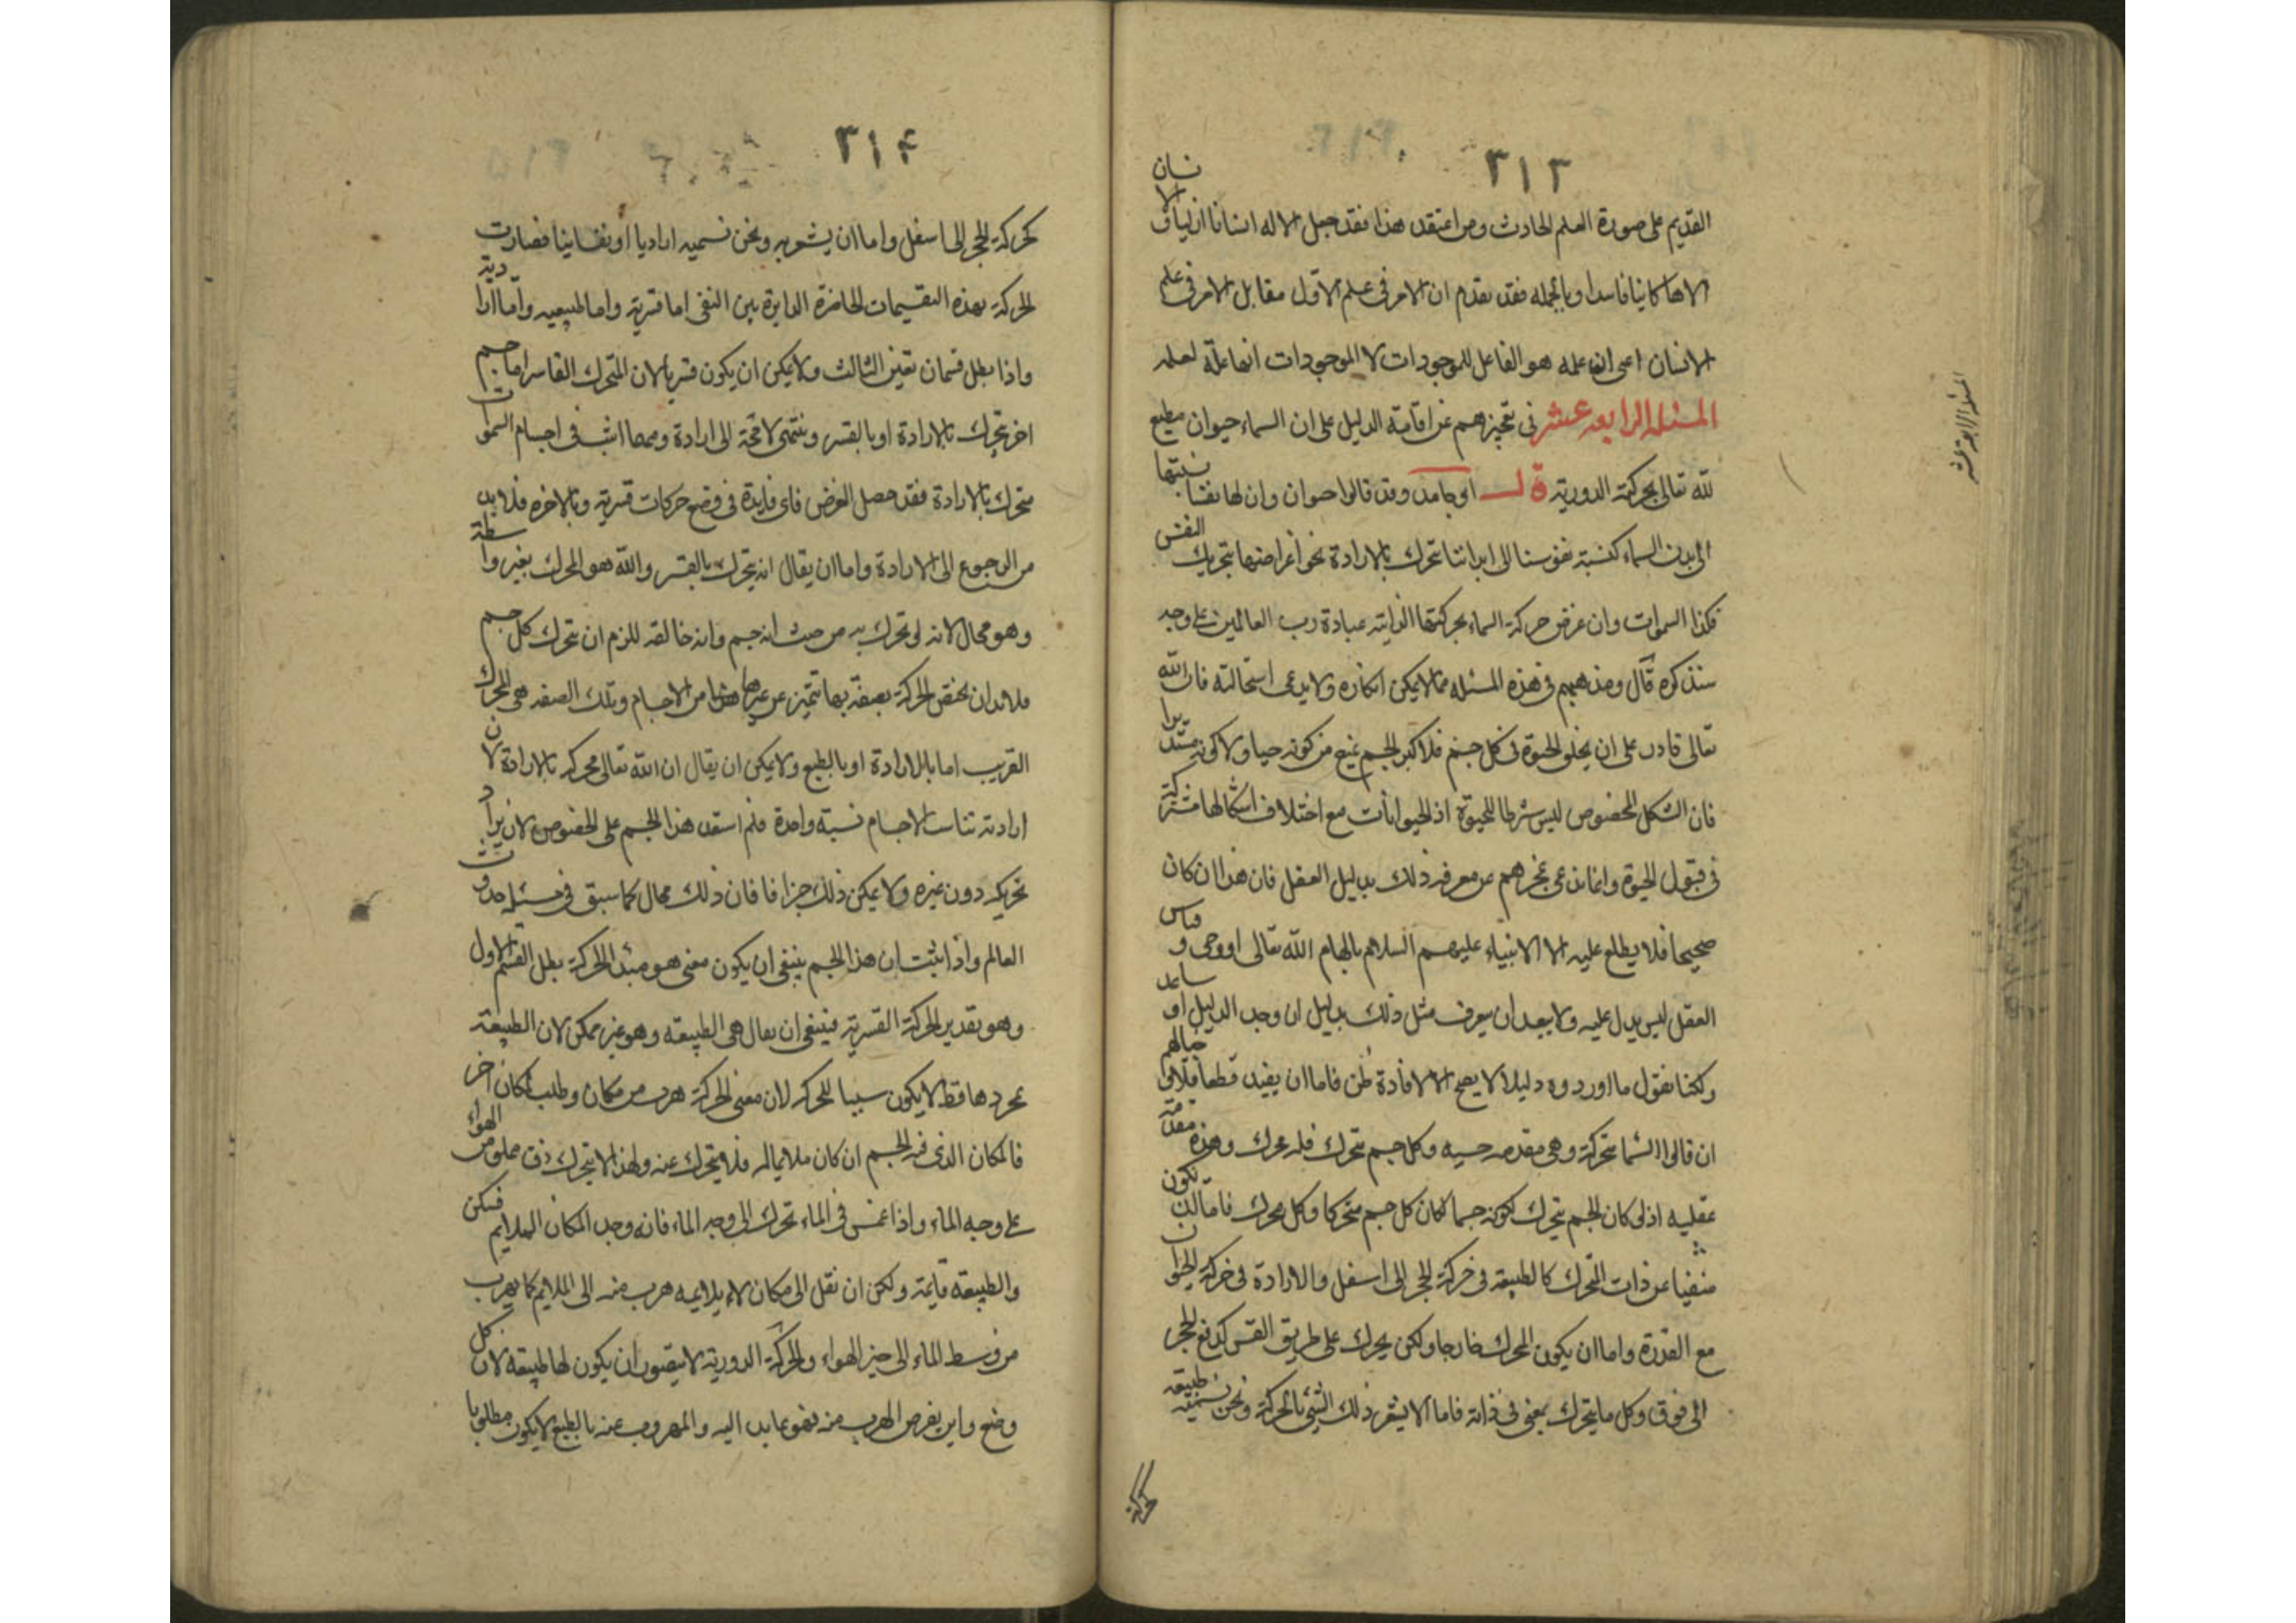 ٣١٣
القديم على صورة العلم الحادث ومن اعتقد هذا فقد جعل الاله انسانا ازليا والانسان
الاها كاينا فاسدا وبالجمله فقد تقدم ان الامر في علم الاول مقابل الامر في علم
الانسان اعنى ان علمه هو الفاعل للموجودات لا الموجودات الفاعلة لعلمه
المسئلة الرابعه عشر في تعجيزهم عن اقامة الدليل على ان السماء حيوان مطيع
لله تعالى بحركته الدورية قال ابو حامد وقد قالوا حيوان وان لها نفسا نسبتها
الى بدن السماء كنسبة نفوسنا الى ابداننا تتحرك بالارادة نحو اغراضها بتحريك النفس
فكذا السموات وان غرض حركة السماء بحركتها الذاتية عبادة رب العالمين على وجه
سنذكره قال ومذهبهم في هذه المسئله مما لا يمكن انكاره ولا يدعى استحالته فان الله
تعالى قادر على ان يخلق الحيوة في كل جسم فلا كبر الجسم يمنع من كونه حيا ولا كونه مستديرا
فان الشكل المخصوص ليس شرطا للحيوة اذ الحيوانات مع اختلاف اشكالها مشتركة
في قبول الحيوة وانما ندعى عجزهم عن معرفه ذلك بدليل العقل فان هذا ان كان
صحيحا فلا يطلع عليه الا الانبياء عليهم السلام بالهام الله تعالى او وحى وقياس
العقل ليس يدل عليه ولا يبعد ان يعرف مثل ذلك بدليل ان وجد الدليل او ساعد
ولكنا نقول ما اوردوه دليلا لا يصح الا لافادة ظن فاما ان يفيد قطعا فلا وخيالهم
ان قالوا السما متحركة وهى مقدمه حسيه وكل جسم متحرك فله محرك وهذه مقدمة
عقليه اذ لو كان الجسم يتحرك لكونه جسما لكان كل جسم متحركا وكل محرك فاما ان يكون
منفيا عن ذات المتحرك كالطبيعة في حركة الحجر الى اسفل والارادة في حركة الحيوان
مع القدرة واما ان يكون المحرك خارجا ولكن يحرك على طريق القسر كدفع الحجر
الى فوق وكل ما يتحرك بمعنى في ذاته فاما الا يشعر ذلك الشئ بالحركة ونحن نسميه طبيعة
كحركة
المسئلة الرابعة عشر
٣١۴
كحركة الحجر الى اسفل واما ان يشعر به ونحن نسميه اراديا او نفسانيا فصارت
الحركة بهذه التقسيمات الحاضرة الدايرة بين النفى اما قسرية واما طبيعيه واما ارادية
واذا بطل قسمان تعين الثالث ولا يمكن ان يكون قسريا لان المتحرك القاسر اما جسم
اخر يتحرك بالارادة او بالقسر وينتهى لا محة الى ارادة ومهما اثبت في اجسام السموات
متحرك بالارادة فقد حصل الغرض فاى فايدة في وضع حركات قسرية وبالاخره فلا بد
من الرجوع الى الارادة واما ان يقال انه يتحرك بالقسر والله هو المحرك بغير واسطة
وهو محال لانه لو تحرك به من حيث انه جسم وانه خالقه للزم ان يتحرك كل جسم
فلا بد ان يختص الحركة بصفة بها تتميز عن غيرها من الاجسام وتلك الصفه هى المحرك
القريب اما بالارادة او بالطبع ولا يمكن ان يقال ان الله تعالى محركه بالارادة لان
ارادته تناسب الاجسام نسبة واحدة فلم استعد هذا الجسم على الخصوص لان يراد
تحريكه دون غيره ولا يمكن ذلك جزافا فان ذلك محال كما سبق في مسئله حدوث
العالم واذا ثبت ان هذا الجسم ينبغى ان يكون معنى هو مبدا الحركة بطل القسم الاول
وهو تقدير الحركة القسرية فينبغى ان يقال هى الطبيعه وهو غير ممكن لان الطبيعة
بمجردها قط لا يكون سببا للحركه لان معنى الحركة هرب من مكان وطلب لمكان اخر
فالمكان الذى فيه الجسم ان كان ملايما له فلا يتحرك عنه ولهذا لا يتحرك زق مملو من الهواء
على وجه الماء واذا غمس في الماء تحرك الى وجه الماء فانه وجد المكان الملايم فسكن
والطبيعه قايمة ولكن ان نقل الى مكان لا يلايمه هرب منه الى الملايم كما يهرب
من وسط الماء الى حيز الهواء والحركة الدورية لا يتصور ان يكون لها طبيعه لان كل
وضع واين يفرض الهرب منه فهو عايد اليه والمهروب عنه بالطبع لا يكون مطلوبا